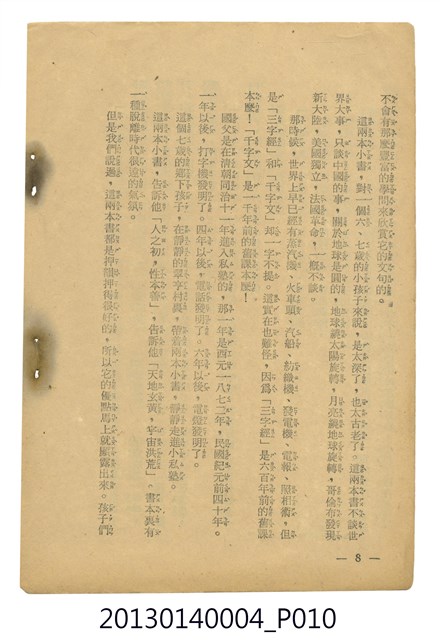 不會有那麼豐富的學問來欣賞它的文句的。
這兩本小書，對一個六、七歲的小孩子來說，是太深了，也太古老了。這兩本書不談世
界大事，只談中國的事，關於地球是圓的，地球繞太陽旋轉，月亮繞地球旋轉，哥倫布發現
新大陸，美國獨立，法國革命，一概不談。
那時候，世界上早已經有蒸汽機、火車頭、汽船、紡織機、發電機、電報、照相術，但
是「三字經」和「千字文」却一字不提。這實在也難怪，因爲「三字經」是六百年前的舊課
本麼！「千字文」是一千年前的舊課本麼！
國父是在清朝同治十一年進入私塾的，那一年是西元一八七二年，民國紀元前四十年。
一年以後，打字機發明了。四年以後，電話發明了。六年以後，電燈發明了。
這個七歲的鄉下孩子，在靜靜的翠亨村裏，帶着兩本小書，靜靜走進小私塾。
這兩本小書，告訴他「人之初，性本善」，告訴他「天地玄黃，宇宙洪荒」。書本裏有
一種脫離時代很遠的氣氛。
但是我們說過，這兩本書都是押韻押得很好的，所以它的優點馬上就顯露出來。孩子們
— 8 —
20130140004_P010